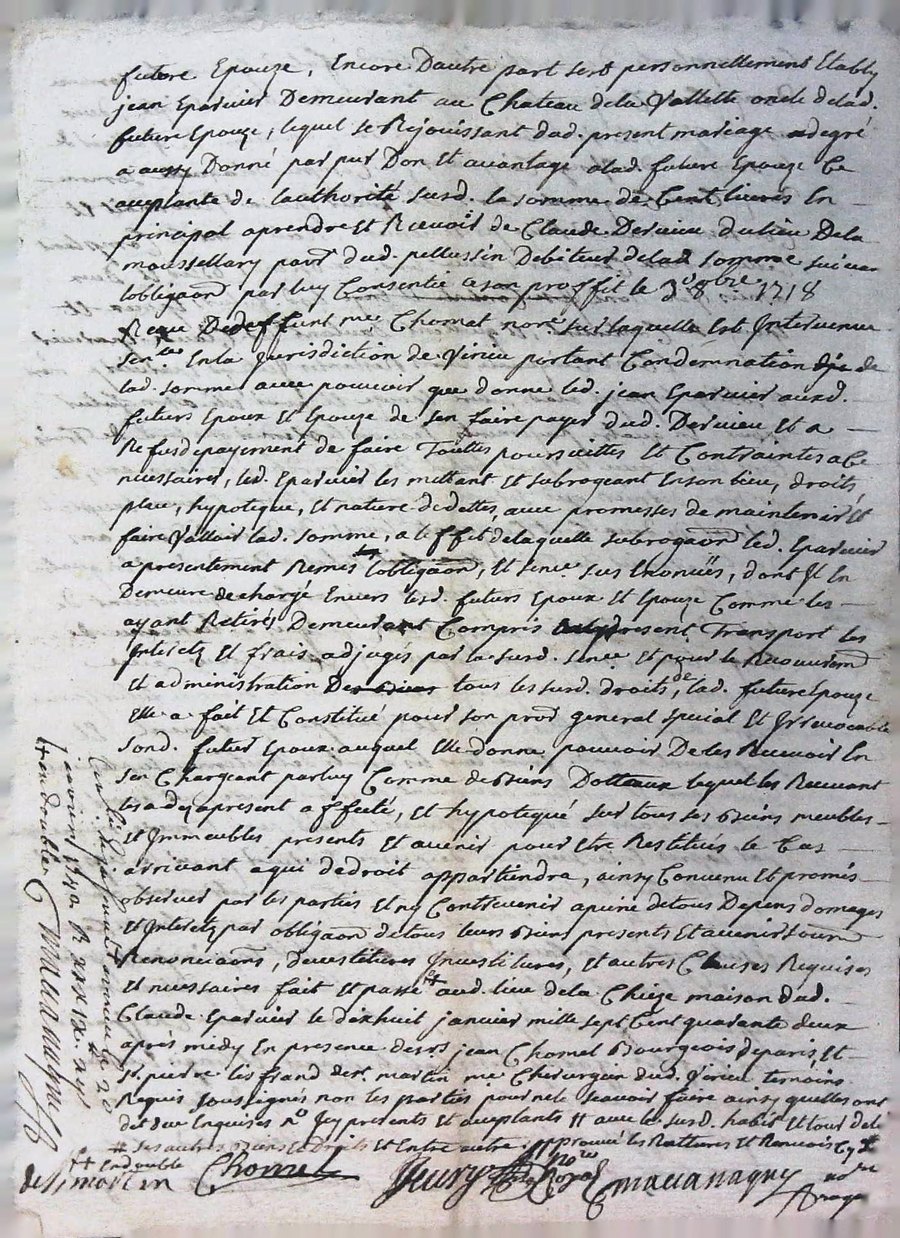 future Epouze, Encore Dautre part sest personnellement Etably
jean Eparvier Demeurant au Chateau dela Vallette oncle delad.
future Epouze, lequel se Rejouissant dud. present mariage adegré
a aussy Donné par pur Don et avantage alad. future Epouze Ce
aceptante de lauthorité susd. la somme de Cent livres En
principal aprendre et Recevoir de Claude Dervieu dulieu Dela
moussellary parr. dud. pellussin Debiteur delad somme suivant
lobligaōn par luy Consentie ason proffit le 3e 8bre 1718
Reçue Dedeffunt me. Chomat nore sur laquelle Est Intervenue
Senten. Enla Jurisdiction de Virieu portant Condemnation de
lad. somme avec pouvoir que donne led. jean Eparvier ausd.
futurs Epoux et Epouze de sen faire payer dud. Dervieu et a
Refus depayement de faire Touttes poursuittes et Contraintes a Ce
necessaires, led. Eparvier les mettant et subrogeant Enson lieu, droits,
place, hypoteque, et nature de dettes, avec promesses de maintenir et
faire Vailloir lad. somme, a leffet delaquelle subrogaōn led. Eparvier
a presentement Remis lobligaōn, et sence sus Enoncées, dont Il En
Demeure dechargé Envers lesd. futurs Epoux et Epouze Comme les
ayant Retirés Demeurant Compris present Transport les
Interets et frais adjuges par la susd. sence et pour le Recouvremt
et administration de tous les susd. droits, led. future Epouze
Elle a fait et Constitué pour son procr general special et Irrevocable
sond. futur Epoux auquel Elle donne pouvoir De les Recevoir En
sen Chargeant parluy Comme debiens Dotteaux lequel les Recevant
les a des apresent affecté, et hypotequé sur tous ses biens meubles
et Immeubles presents et avenir pour Etre Restitués le Cas
arrivant aqui dedroit appartiendra, ainsy Convenu et promis
observer par les parties et ny Contrevenir apeine detous Depens domages
et Interets par obligaōn detous leurs biens presents et avenir soum.
Renonciaōns, devestitures Investitures, et autres Clauses Requises
et necessaires fait et passé aud. lieu dela Chieze maison dud.
Claude Eparvier le dixhuit janvier mille sept Cent quarante deux
aprés midy En presence des srs jean Chomel Bourgeois de paris, et
sr. pierre lisfrand der. martin me Chirurgien dud. Virieu temoins
Requis soussignés non les parties pour ne le scavoir faire ainsy quelles ont
dit de ce Enquises presents et aceptants avec le susd. habit et tour delit
ses autres biens et droits et Entre autre aprouvé les Rattures et Renvois
Endouble
de st martin Chomel fleury Royal Macanagny